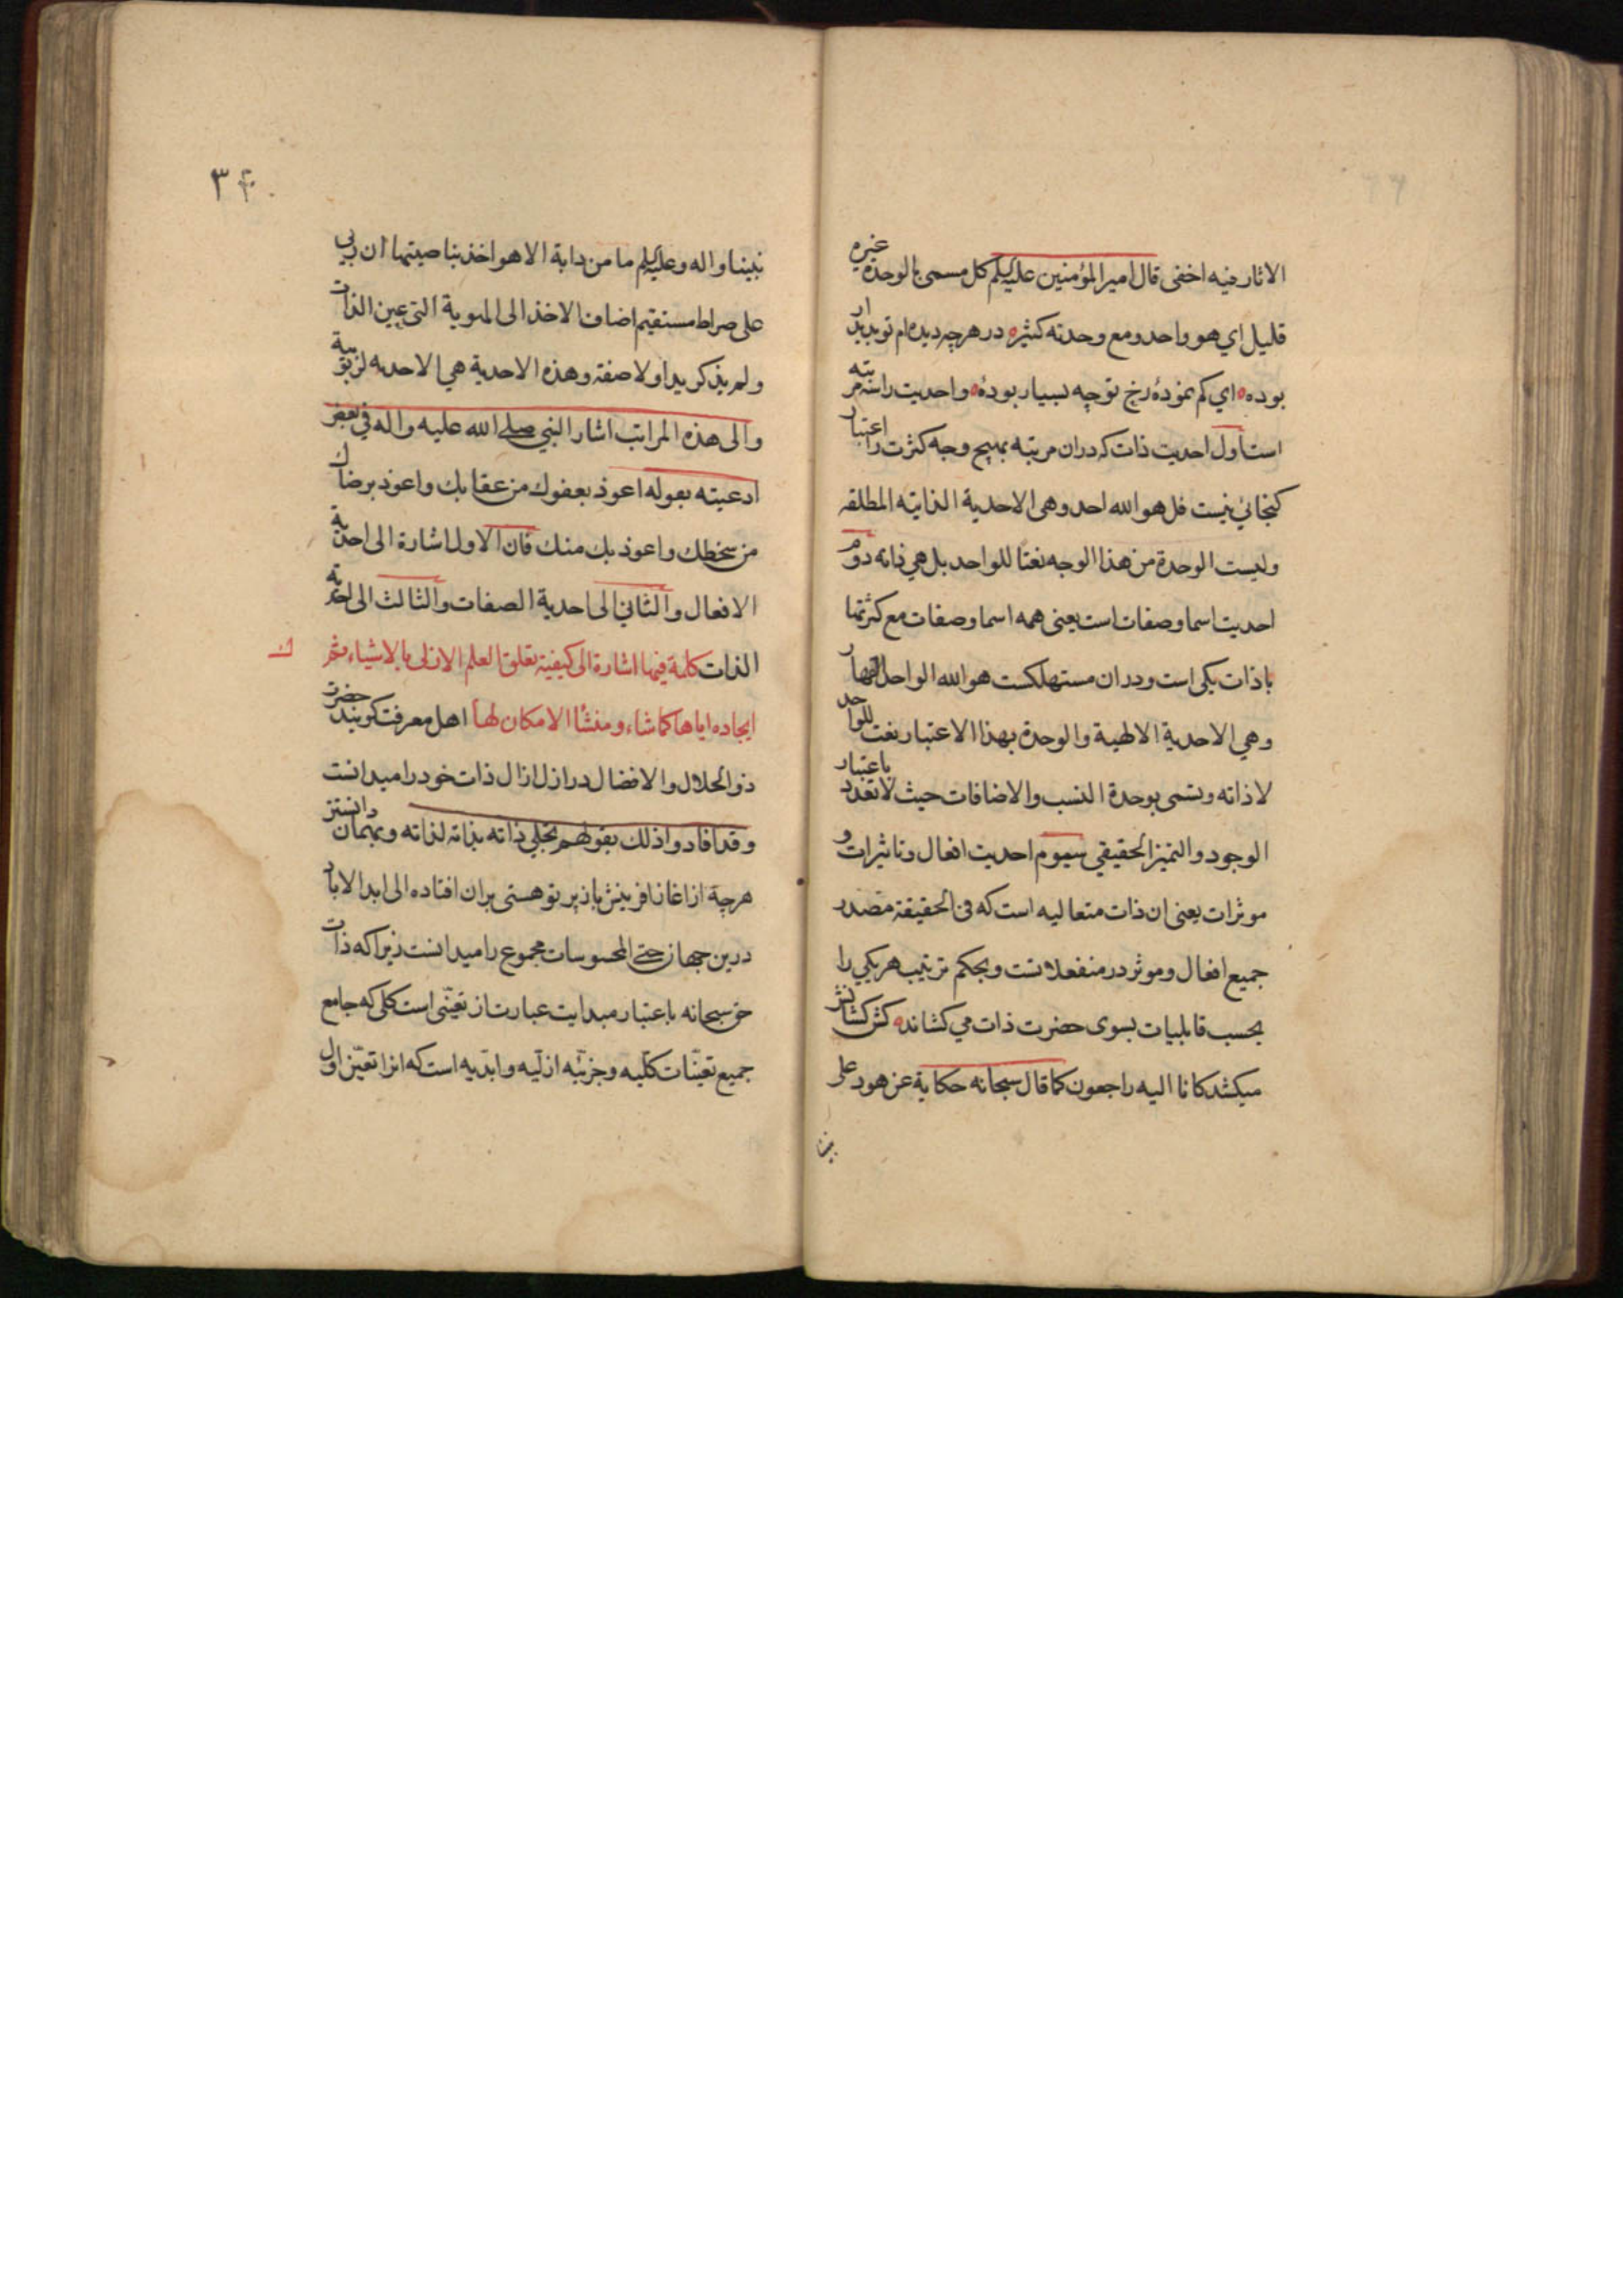 الاثار فيه اخفى قال امير المؤمنين علیه‌السلم كل مسمى بالوحدة غيره
قليل اي هو واحد ومع وحدته كثيره در هرچه ديده‌ام تو پديدار
بوده اي كم نموده رخ تو چه بسيار بوده واحديت را سه مرتبه
است اول احديت ذات كه دران مرتبه بهيچ وجه كثرت را اعتبار
كنجائي نيست قل هو الله احد وهى الاحدية الذاتيه المطلقه
وليست الوحدة من هذا الوجه نعتا للواحد بل هي ذاته دوم
احديت اسما وصفات است يعنى همه اسما وصفات مع كثرتها
با ذات يكى است ودران مستهلكست هو الله الواحد القهار
وهي الاحدية الالهية والوحدة بهذا الاعتبار نعت للواحد
لا ذاته وتسمى بوحدة النسب والاضافات حيث لا تعدد باعتبار
الوجود والتميز الحقيقي سيوم احديت افعال وتاثيرات و
موثرات يعنى ان ذات متعاليه است كه فى الحقيقة مصدر
جميع افعال وموثر در منفعلاتست وبحكم ترتيب هر يكي را
بحسب قابليات بسوى حضرت ذات مي كشاند كش كشانش
ميكشد كانا اليه راجعون كما قال سبحانه حكاية عن هود على
نبينا
٣٤
نبينا واله وعلیه‌السلم ما من دابة الا هو اخذ بناصيتها ان ربي
على صراط مستقيم اضاف الاخذ الى الهوية التى عين الذات
ولم يذكر يدا ولا صفة وهذه الاحدية هي الاحديه الربوبية
والى هذه المراتب اشار النبي صلى الله عليه واله في بعض
ادعيته بقوله اعوذ بعفوك من عقابك واعوذ برضاك
من سخطك واعوذ بك منك فان الاول اشارة الى احدية
الافعال والثاني الى احدية الصفات والثالث الى احدية
الذات كلمة فيها اشارة الى كيفية تعلق العلم الازلى بالاشياء ثم
ايجاده اياها كما شاء ومنشأ الامكان لها اهل معرفت كويند حضرت
ذو الجلال والافضال در ازل ازال ذات خود را ميدانست
وقد افادوا ذلك بقولهم تجلى ذاته بذاته لذاته وبهمان دانستن
هرچه از اغاز افرينش باز پرتو هستى بران افتاده الى ابد الاباد
درين جهان حتى المحسوسات مجموع را ميدانست زيرا كه ذات
حق سبحانه باعتبار مبدايت عبارت از تعينى است كلى كه جامع
جميع تعينات كليه وجزئيه ازليه وابديه است كه انرا تعين اول